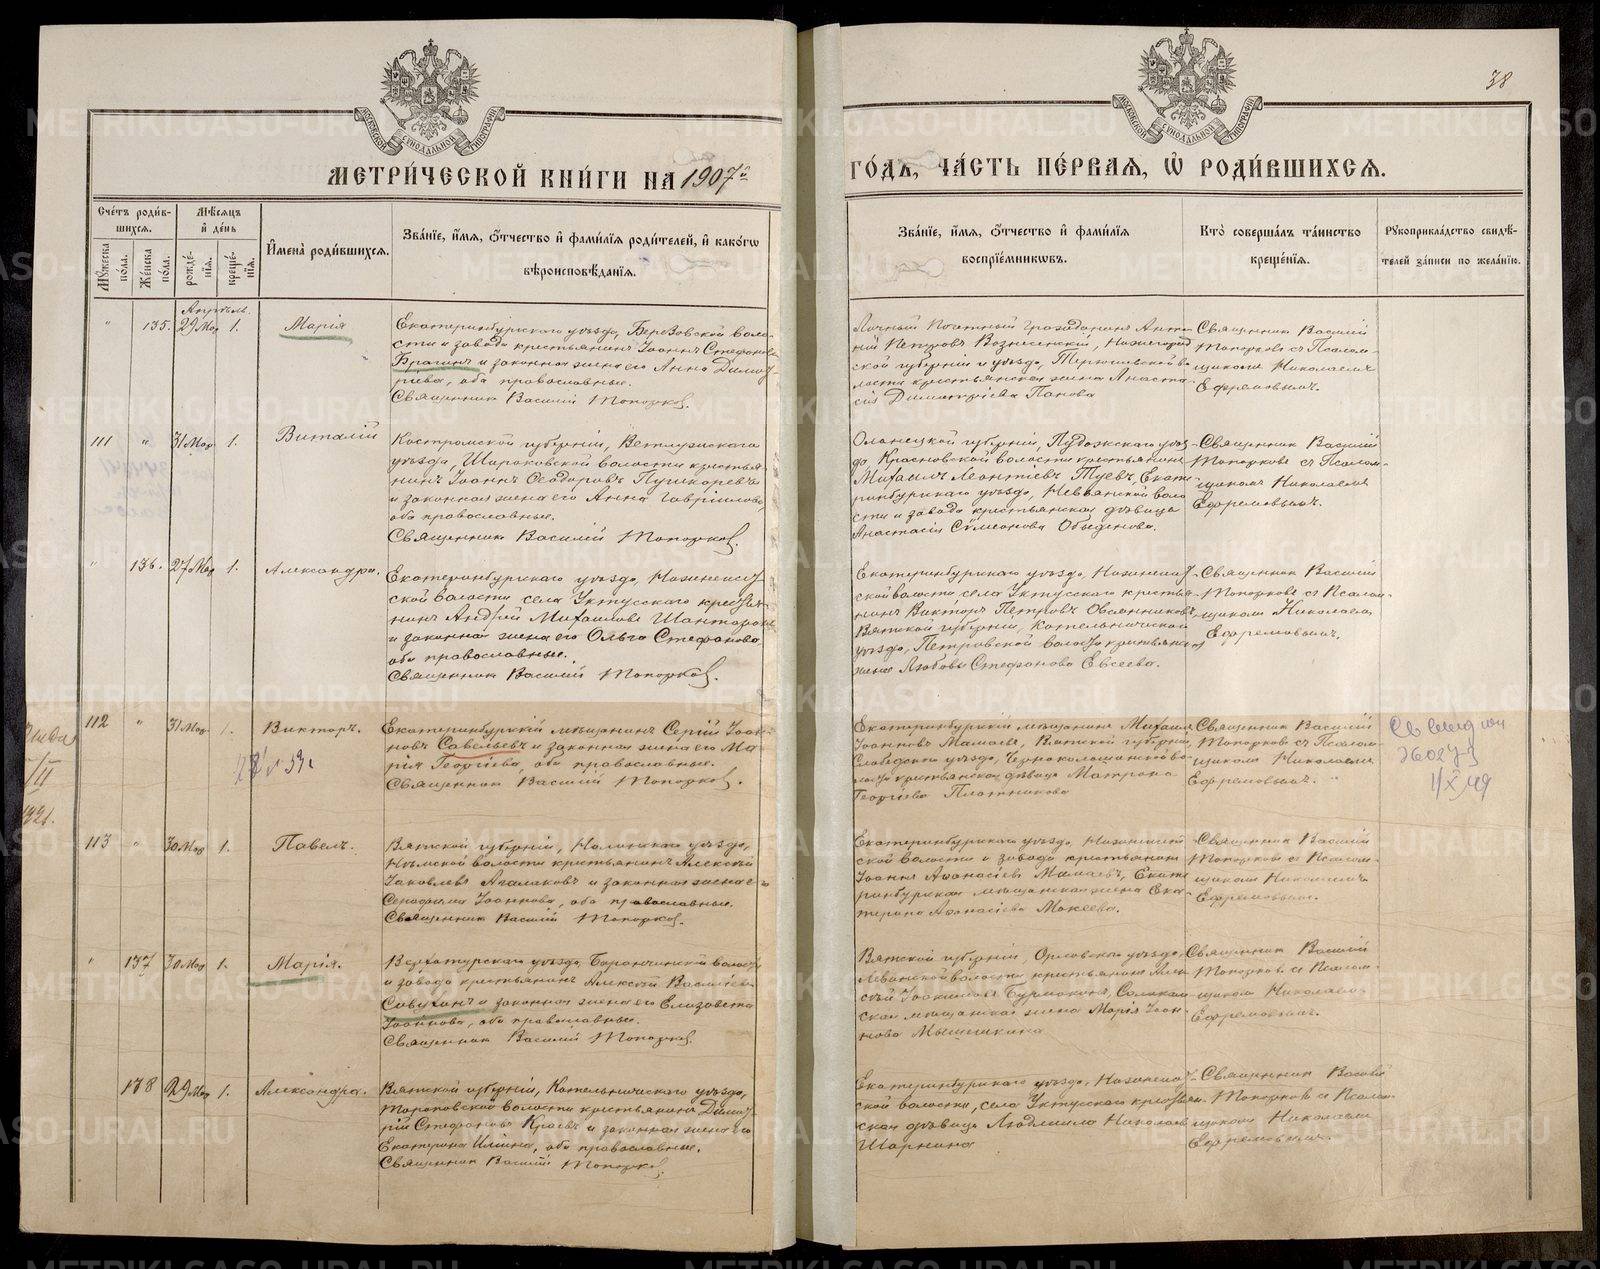 38
МЕТРИ́ЧЕСКОЙ КНИ́ГИ НА 1907й
ГО́ДЪ, ЧА́СТЬ ПЕ́РВАЯ, Ѡ҆ РОДИ́ВШИХСЯ.
Сче́тъ роди́в-
шихся.
Мꙋ́жеска по́ла.
Же́нска по́ла.
Мѣ́сяцъ и҆ де́нь
рожде́нїя.
креще́нїя.
И҆мена̀ роди́вшихся.
Зва́нїе, и҆́мя, ѻ҆́тчество и҆ фами́лїя роди́телей, и҆ како́гѡ
вѣроисповѣ́данїя.
Зва́нїе, и҆́мя, ѻ҆́тчество и҆ фами́лїя
воспрїе́мникѡвъ.
Кто̀ соверша́лъ та́инство
креще́нїя.
Рꙋкоприкла́дство свидѣ́-
телей за́писи по жела́нїю.
Апрѣль.
" 135. 29 Мар 1. Марія
Екатеринбургскаго уѣзда, Березовской воло-
сти и завода крестьянинъ Іоаннъ Стефановъ
Брагинъ и законная жена его Анна Димит-
ріева, оба православные.
Священникъ Василій Топорковъ.
Личный Почетный гражданинъ
Петровъ Вознесенскій, Нижегород
ской губерніи и уѣзда, во-
лости крестьянская жена Анаста-
сія Димитріева Панова
Священникъ Василій
Топорковъ съ Псалом-
щикомъ Николаемъ
Ефремовымъ.
111 " 31 Мар 1. Виталій
Костромской губерніи, Ветлужскаго
уѣзда, Широковской волости крестья-
нинъ Іоаннъ Ѳеодоровъ Пушкаревъ
и законная жена его Анна Гавріилова,
оба православные.
Священникъ Василій Топорковъ.
Олонецкой губерніи, Пудожскаго уѣз-
да, Красновской волости крестьянинъ
Михаилъ Леонтіевъ Туевъ, Екате-
ринбургскаго уѣзда, Невьянской воло
сти и завода крестьянская дѣвица
Анастасія Сѵмеонова Обыденова.
Священникъ Василій
Топорковъ съ Псалом-
щикомъ Николаемъ
Ефремовымъ.
" 136. 27 Мар 1. Александра.
Екатеринбургскаго уѣзда, Нижнеисет-
ской волости села Уктусскаго крестья-
нинъ Андрей Михаиловъ
и законная жена его Ольга Стефанова,
оба православные.
Священникъ Василій Топорковъ.
Екатеринбургскаго уѣзда, Нижнеисет-
ской волости села Уктусскаго крестья-
нинъ Викторъ Петровъ Овсянниковъ,
Вятской губерніи, Котельническаго
уѣзда, Петровской волости крестьянская
жена Любовь Стефанова Евсеева.
Священникъ Василій
Топорковъ съ Псалом-
щикомъ Николаемъ
Ефремовымъ.
112 " 31 Мар 1. Викторъ.
Екатеринбургскій мѣщанинъ Сергій Іоан-
новъ Савельевъ и законная жена его Ма-
рія Георгіева, оба православные.
Священникъ Василій Топорковъ.
Екатеринбургскій мѣщанинъ Михаилъ
Іоанновъ Мамаевъ, Вятской губерніи,
Слободского уѣзда, во-
лости крестьянская дѣвица Матрона
Георгіева Плотникова
Священникъ Василій
Топорковъ съ Псалом-
щикомъ Николаемъ
Ефремовымъ.
113 " 30 Мар 1. Павелъ.
Вятской губерніи, Нолинскаго уѣзда,
волости крестьянинъ Алексѣй
Іаковлевъ Агалаковъ и законная жена его
Серафима Іоаннова, оба православные.
Священникъ Василій Топорковъ.
Екатеринбургскаго уѣзда, Нижнеисет-
ской волости и завода крестьянинъ
Іоаннъ Аѳанасіевъ Мамаевъ, Екате-
ринбургская мѣщанская жена Ека-
терина Аѳанасіева Макеева.
Священникъ Василій
Топорковъ съ Псалом-
щикомъ Николаемъ
Ефремовымъ.
" 137 30 Мар 1. Марія.
Верхотурскаго уѣзда, Баранчинской волости
и завода крестьянинъ Алексѣй Василіевъ
и законная жена его Елизавета
Іоаннова, оба православные.
Священникъ Василій Топорковъ.
Вятской губерніи, Орловскаго уѣзда,
волости крестьянинъ Алек-
сѣй Іоакимовъ Бурмакинъ,
ская мѣщанская жена Марія Іоан-
нова Мышкина
Священникъ Василій
Топорковъ съ Псалом-
щикомъ Николаемъ
Ефремовымъ.
138 29 Мар 1. Александра.
Вятской губерніи, Котельническаго уѣзда,
волости крестьянинъ Димит-
рій Стефановъ и законная жена его
Екатерина Ильина, оба православные.
Священникъ Василій Топорковъ.
Екатеринбургскаго уѣзда, Нижнеисет-
ской волости, села Уктусскаго крестьян-
ская дѣвица Людмила Николаева
Шарнина
Священникъ Василій
Топорковъ съ Псалом-
щикомъ Николаемъ
Ефремовымъ.
METRIKI.GASO-URAL.RU